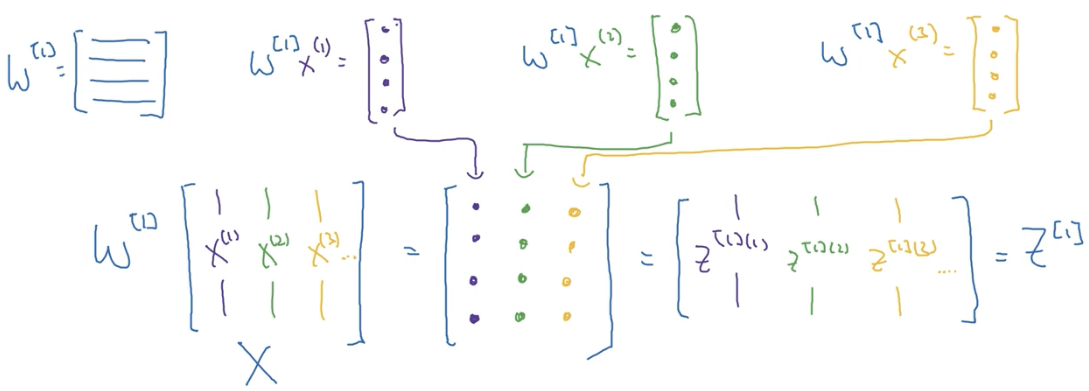 W^[1] = [ ] W^[1] x^(1) = [ ] W^[1] x^(2) = [ ] W^[1] x^(3) = [ ]
W^[1] [ x^(1) x^(2) x^(3) ... ] = [ ] = [ z^[1](1) z^[1](2) z^[1](3) .... ] = Z^[1]
X